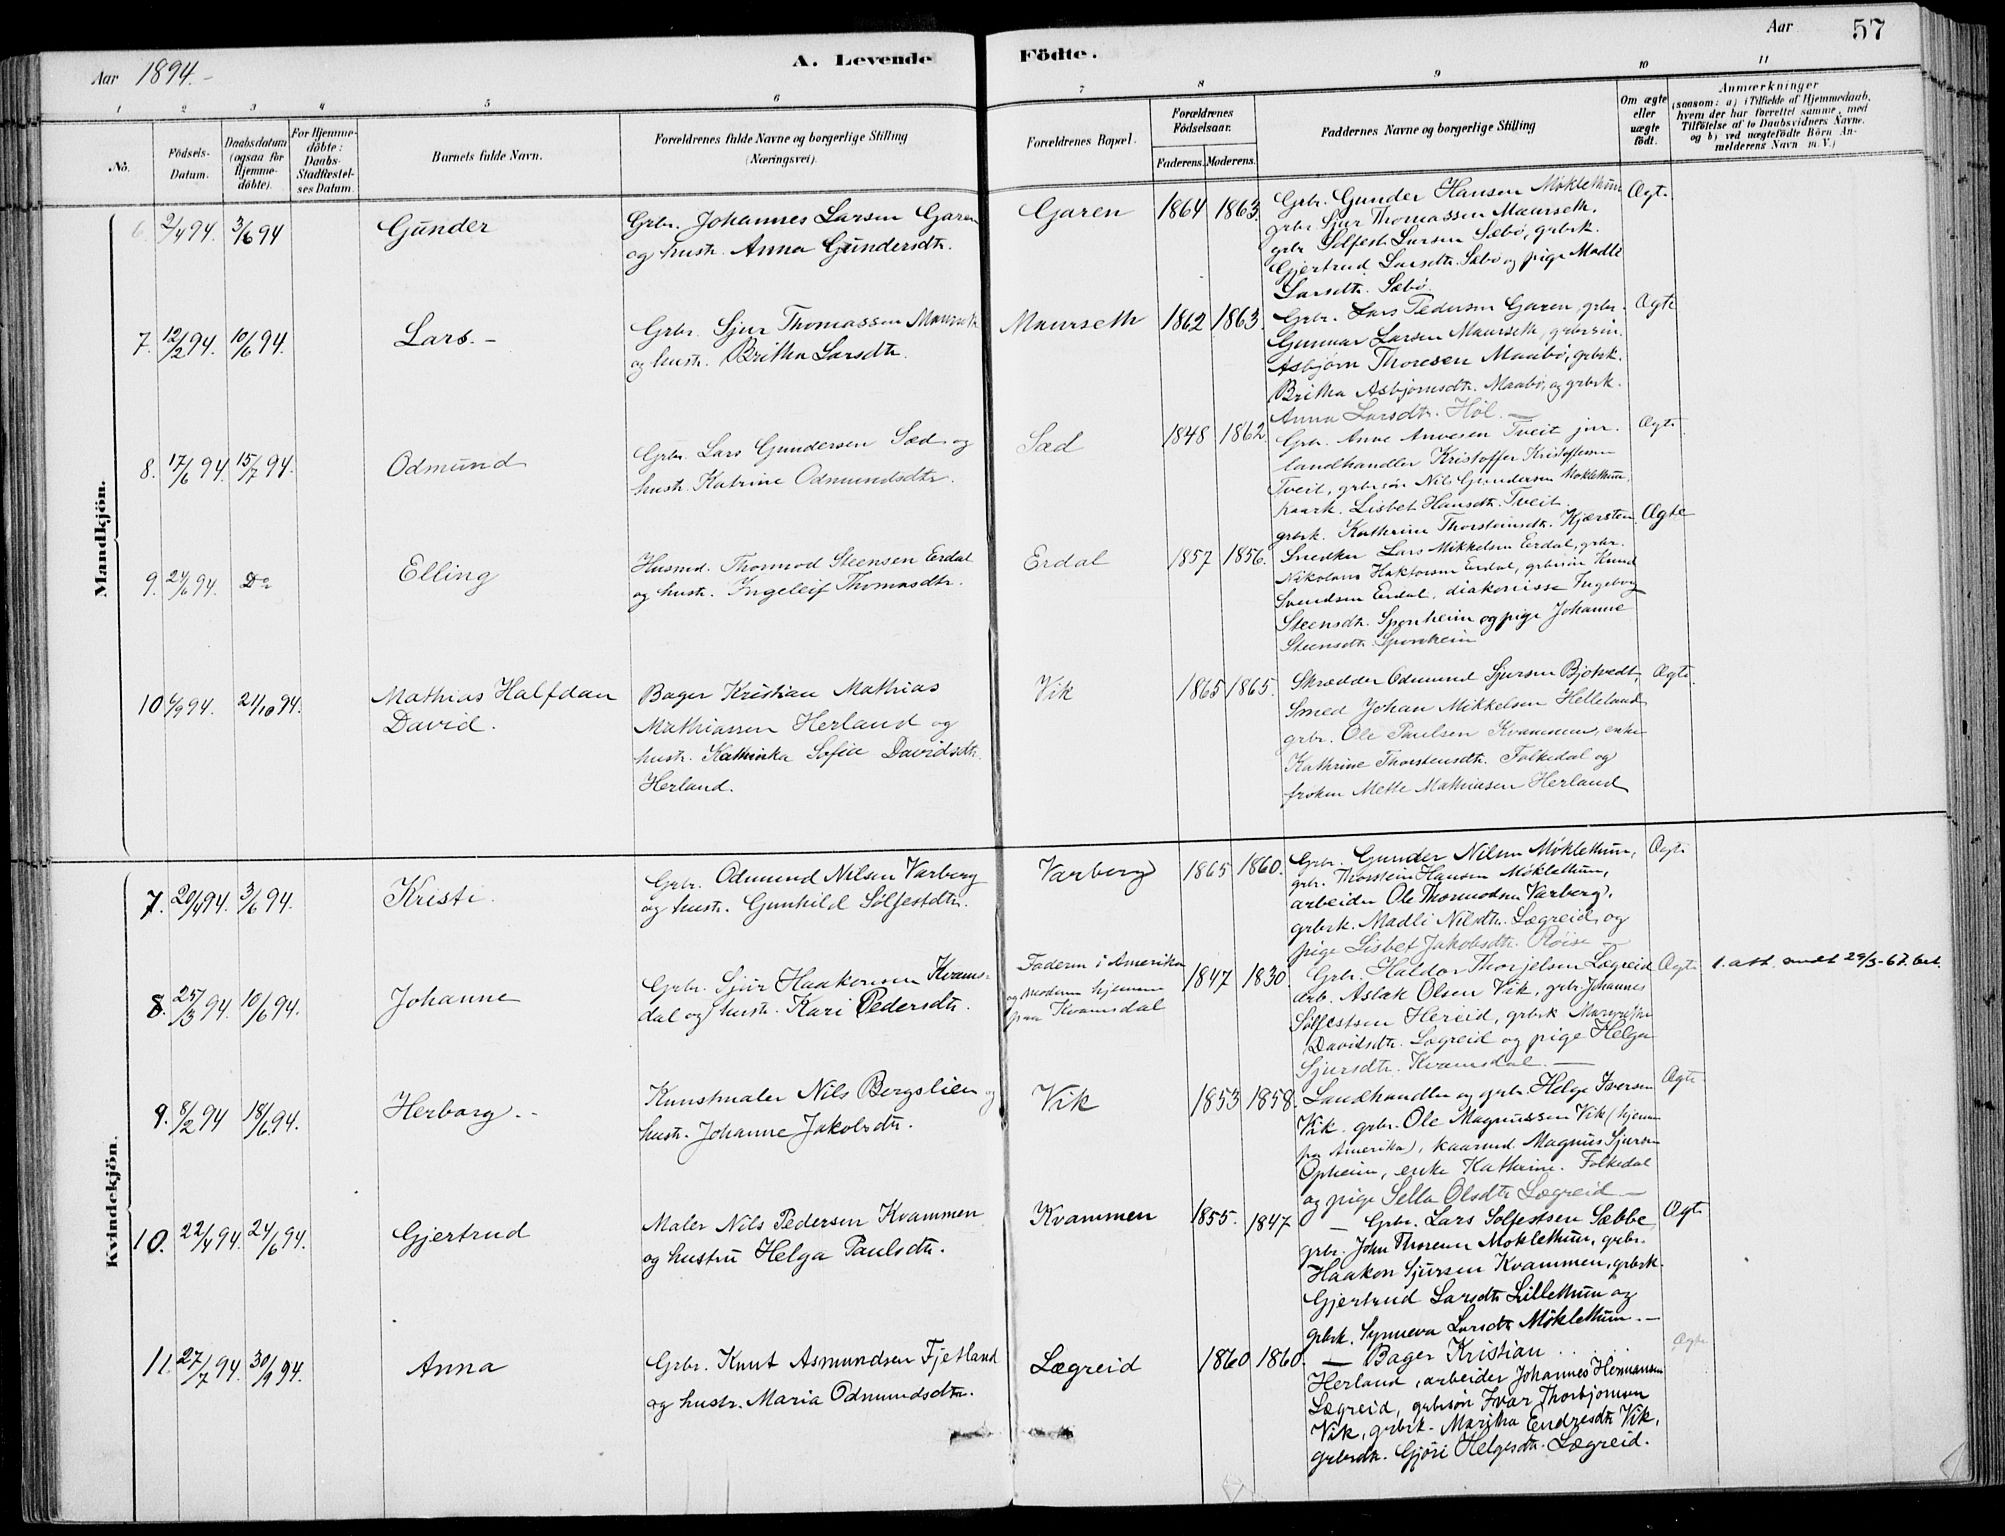 Aar 1894.-
A. Levende
Födte.
Aar
57
1
2
3
4
5
6
7
8
9
10
11
No.
Födsels-
Datum.
Daabsdatum
(ogsaa for
Hjemme-
döbte).
For Hjemme-
döbte:
Daabs-
Stadfæstel-
ses Datum.
Barnets fulde Navn.
Forældrenes fulde Navne og borgerlige Stilling
(Næringsvei).
Forældrenes Bopæl.
Forældrenes
Födselsaar.
Faderens.
Moderens.
Faddernes Navne og borgerlige Stilling
Om ægte
eller
uægte
födt.
Anmærkninger
(saasom: a) i Tilfælde af Hjemmedaab,
hvem der har forrettet samme, med
Tilföielse af to Daabsvidners Navne.
og b) ved uægtefödte Börn An-
melderens Navn m. V.)
Mandkjön.
6. 2/4 94. 3/6 94
Gunder
Grbr. Johannes Larsen Garen
og hustr. Anna Gundersdtr.
Garen
1864 1863.
Grbr. Gunder Hansen Møklethun
grbr. Sjur Thomassen Maurseth.
grbr. Solfest Larsen Sæbø, grbrk.
Gjertrud Larsdtr. Sæbø og pige Madle
Larsdtr. Sæbø.
Ægt.
7. 12/2 94. 10/6 94.
Lars. -
Grbr. Sjur Thomassen Maurseth
og hustr. Britha Larsdtr.
Maurseth
1862 1863.
Grbr. Lars Pedersen Garen, grbr.
Gunnar Larsen Maurseth, grbrsøn
Asbjørn Thoresen Maabø, grbrk.
Britha Asbjørnsdtr. Maabø, og grbrk.
Anna Larsdtr. Høl. -
Ægte
8. 17/6 94. 15/7 94.
Odmund
Grbr. Lars Gundersen Sæd og
hustr. Katrine Odmundsdtr.
Sæd
1848 1862
Grbr. Anve Anvesen Tveit jnr.
landhandler Kristoffer Kristoffersen
Tveit, grbrsøn Nils Gundersen Møklethun,
kaark. Lisbet Hansdtr. Tveit.
grbrk. Kathrine Thorsteinsdtr. Kjærsten
Ægt.
9. 24/6 94. Do
Elling
Husmd. Thormod Steensen Erdal
og hustr. Ingeleif Thomasdtr.
Erdal
1857 1856.
Snedker Lars Mikkelsen Erdal, grbr.
Nikolaus Haktorsen Erdal, grbrsøn Knud
Svendsen Erdal, diakonisse Ingeborg
Steensdtr. Sponheim og pige Johanne
Steensdtr. Sponheim
Ægte
10 6/9 94. 21/10 94.
Mathias Halfdan
David.
Bager Kristian Mathias
Mathiassen Herland og
hustr. Kathinka Sofie Davidsdtr.
Herland.
Vik
1865 1865.
Skrædder Odmund Sjursen Bjotvedt,
Smed Johan Mikkelsen Helleland
grbr. Ole Paulsen Kvammen, enke
Kathrine Thorstensdtr. Folkedal og
frøken Mette Mathiasen Herland
Ægt.
Kvindekjön.
7. 20/4 94. 3/6 94.
Kristi.
Grbr. Odmund Nilsen Varberg
og hustr. Gunhild Sølfestdtr.
Varberg
1865 1860.
Grbr. Gunder Nilsen Møklethun,
grbr. Thorstein Hansen Møklethun,
arbeider Ole Thormodsen Varberg,
grbrk. Madli Nilsdtr. Lægreid, og
pige Lisbet Jakobsdtr. Røise -
Ægt.
8. 25/3 94. 10/6 94.
Johanne
Grbr. Sjur Haakonsen Kvams-
dal og hustr. Kari Pedersdtr.
Faderen i Amerika
og moderen hjemme
paa Kvamsdal
1847 1830
Grbr. Haldor Thorjelsen Lægreid
arb. Aslak Olsen Vik, grbr. Johannes
Sølfestsen Hereid, grbrk Margrethe
Davidsdtr. Lægreid og pige Helga
Sjursdtr. Kvamsdal. -
Ægt.
1. att. sendt 29/3-67. bet.
9. 8/2 94 18/6 94.
Herborg. -
Kunstmaler Nils Bergslien og
hustr. Johanne Jakobsdtr.
Vik
1853 1858.
Landhandler og grbr. Helge Iversen
Vik. grbr. Ole Magnussen Vik (hjem
fra Amerika), kaarmd. Magnus Sjursen
Opheim, enke Kathrine Folkedal
og pige Sella Olsdtr. Lægreid -
Ægt.
10. 22/4 94. 24/6 94.
Gjertrud
Maler Nils Pedersen Kvammen
og hustru Helga Paulsdtr.
Kvammen
1855. 1847
- Grbr. Lars Sølfestsen Sæbbe,
grbr. John Thoresen Møklethun, grbr.
Haakon Sjursen Kvammen, grbrk.
Gjertrud Larsdtr Lillethun og
grbrk. Synneva Larsdtr Møklethun. -
Ægt.
11. 27/7 94. 30/9 94.
Anna
Grbr. Knut Asmundsen Fjetland
og hustr. Maria Odmundsdtr.
Lægreid
1860 1860.
- Bager Kristian
Herland, arbeider Johannes Hermansen
Lægreid, grbrsøn Ivar Thorbjørnsen
Vik, grbrk. Martha Endresdtr Vik,
grbrdtr. Gjøri Helgesdtr. Lægreid.
Ægte